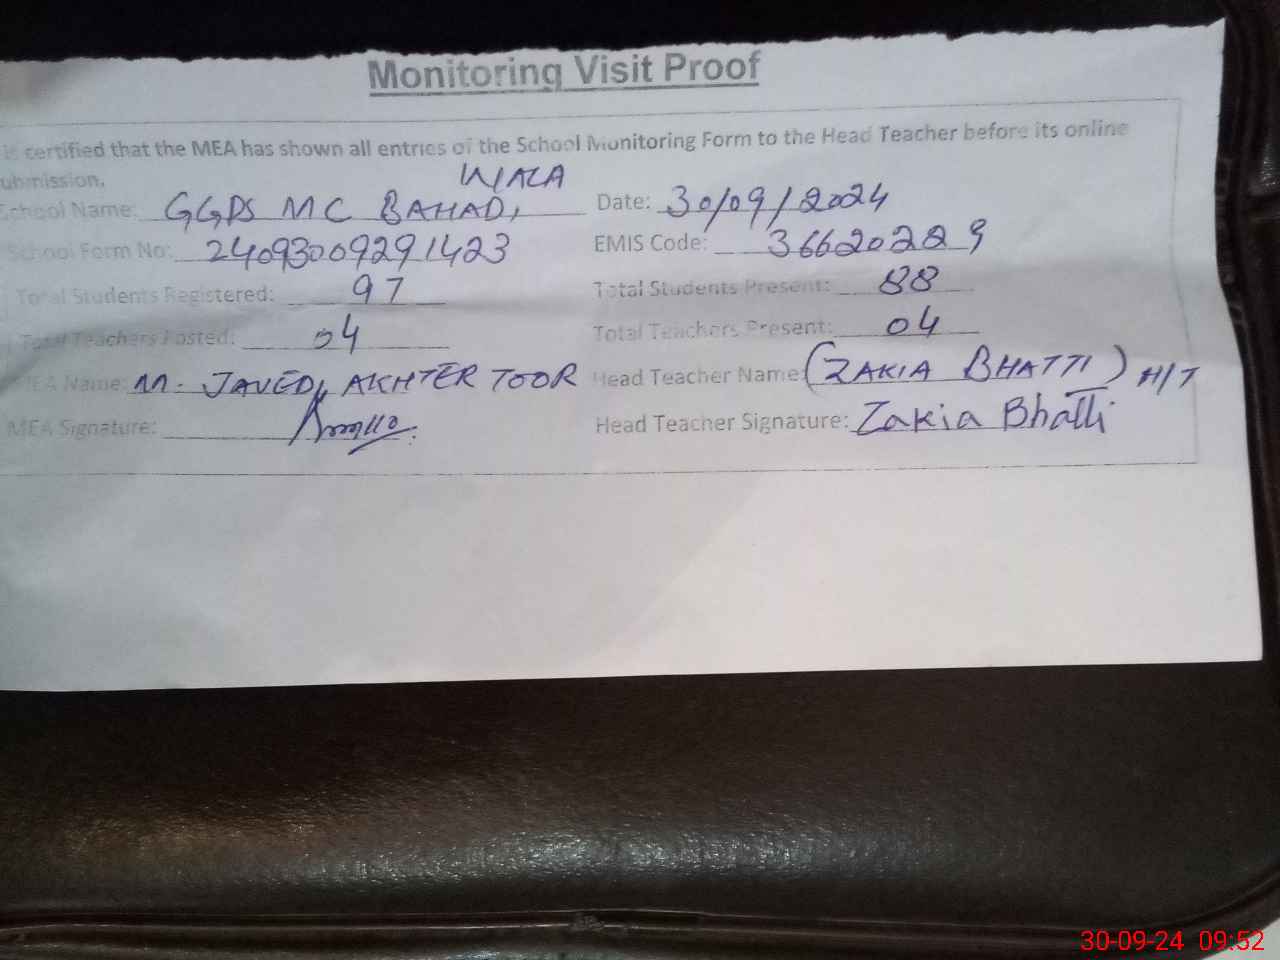 Monitoring Visit Proof
is certified that the MEA has shown all entries of the School Monitoring Form to the Head Teacher before its online
ubmission.
WALA
School Name: GGPS MC BAHAD, Date: 30/09/2024
School Form No: 24093009291423 EMIS Code: 36620229
Total Students Registered: 97 Total Students Present: 88
Total Teachers Posted: 04 Total Teachers Present: 04
MEA Name: M. JAVED AKHTER TOOR Head Teacher Name: (ZAKIA BHATTI) H/T
MEA Signature: Head Teacher Signature: Zakia Bhatti
30-09-24 09:52